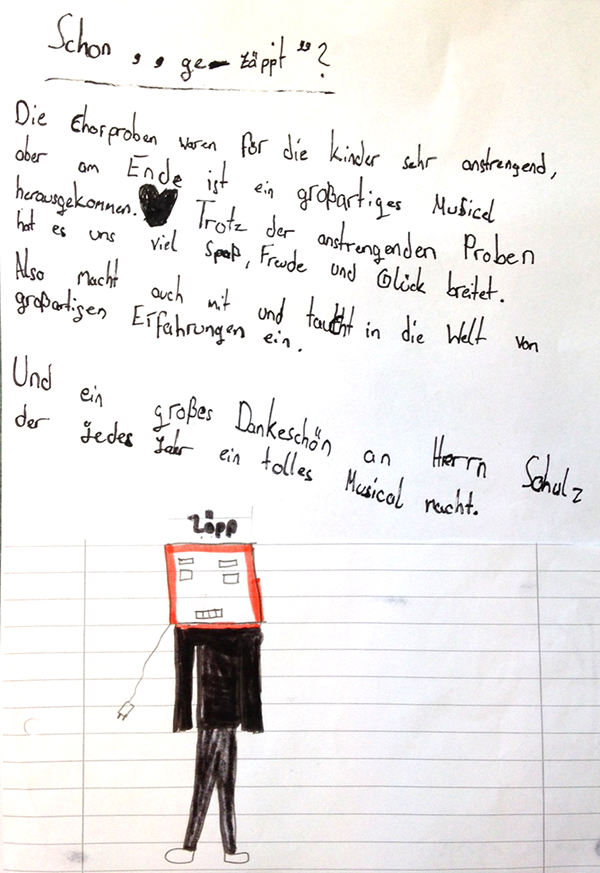 Schon ,, ge-zäppt "?
Die Chorproben waren für die kinder sehr anstrengend,
aber am Ende ist ein großartiges Musicel
herausgekommen. Trotz der anstrengenden Proben
hat es uns viel Spaß, Freude und Glück breitet.
Also macht auch mit und taucht in die Welt von
großartigen Erfahrungen ein.
Und ein großes Dankeschön an Herrn Schulz
der jedes Jahr ein tolles Musical macht.
Zäpp